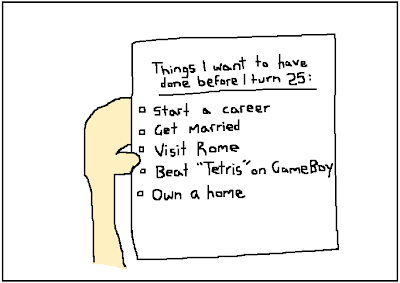 Things I want to have
done before I turn 25:
Start a career
Get Married
Visit Rome
Beat "Tetris" on GameBoy
Own a home